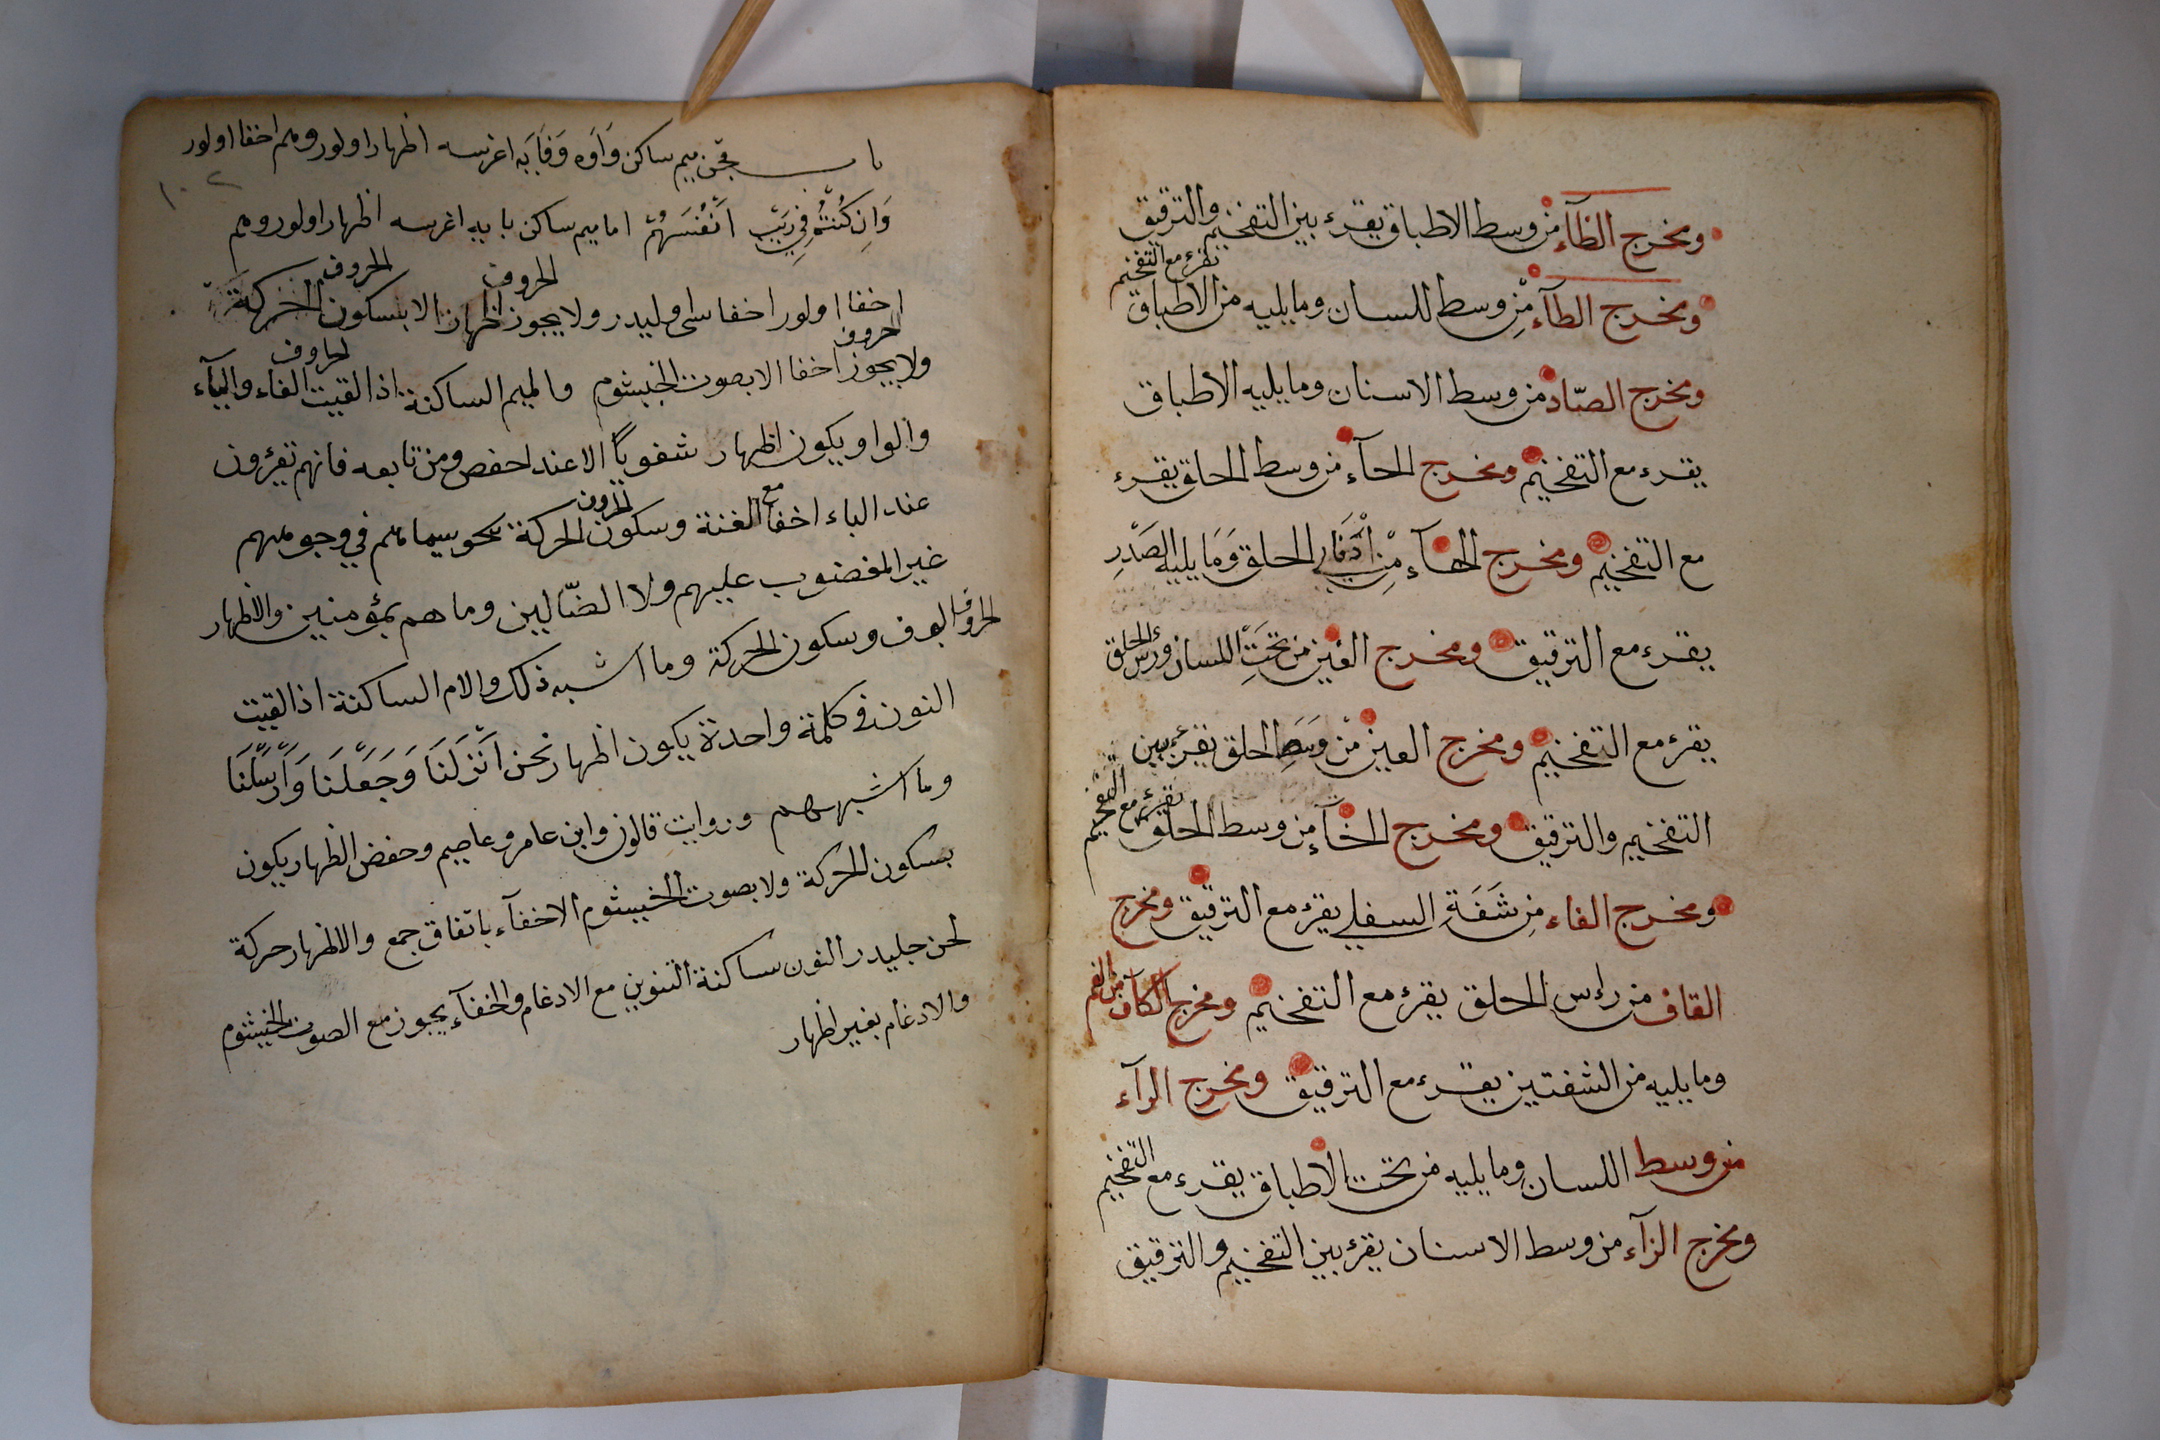 ومخرج الظآء من وسط الاطباق يقرء بين التفخيم والترقيق
يقرء مع التفخيم
ومخرج الطآء مِن وسط اللسان وما يليه من الاطباق
ومخرج الصّاد من وسط الاسنان وما يليه الاطباق
يقرء مع التفخيم ومخرج الحآء من وسط الحلق يقرء
مع التفخيم ومخرج الهآء مِنْ الحلق وَمَا يليه الصَدْرِ
يقرء مع الترقيق ومخرج الغين من تحَتِ اللسان ورءس الحلق
يقرء مع التفخيم ومخرج العين مِنْ وَسَطِ الحلق يقرء بين
التفخيم والترقيق ومخرج الخآء مِن وسط الحلق يقرء مع التفخيم
ومخرج الفاء مِن شَفَةِ السفلى يقرء مع الترقيق ومخرج
القاف من راءس الحلق يقرء مع التفخيم ومخرج الكاف من الفم
وما يليه من الشفتين يقرء مع الترقيق ومخرج الرآء
من وسط اللسان وما يليه من تحت الاطباق يقرء مع التفخيم
ومخرج الزآء من وسط الاسنان يقرء بين التفخيم والترقيق
باب قچن ميم ساكن وَاوَه وَفَايَه اغرسه اظهار اولور وهم اخفا اولور
وَاِن كُنتُمْ فِي رَيْبٍ اَنْفُسَهُمْ اما ميم ساكن بايه اغرسه اظهار اولور وهم
اخفا اولور اخفاسى اوليدر ولا يجوز اظهار الحروف الا بسكون الحروف الحركة
ولا يجوز اخفا الحروف الا بصوت الخيشوم والميم الساكنة اذا لقيت الحروف الفاء والياء
والواو يكون اظهار شفوياً الا عند حفص ومن تابعه فانهم تقرؤن
عند الباء اخفا مع الغنة وسكون الحروف الحركة نحو سيماهم في وجوههم
غير المغضوب عليهم ولا الضّالين وما هم بمؤمنين والاظهار
الحروف وسكون الحركة وما اشبه ذلك والام الساكنة اذا لقيت
النون فى كلمة واحدة يكون اظهار نحن اَنْزَلْنَا وَجَعَلْنَا وَاَرْسَلْنَا
وما اشبههم وروايت قالون وابن عامر وعاصيم وحفض اظهار يكون
بسكون الحركة ولا بصوت الخيشوم الاخفآء باتفاق جمع والاظهار حركة
لحن جليدر النون ساكنة التنوين مع الادغام والخفآء يجوز مع الصوت الخيشوم
والادغام بغير اظهار